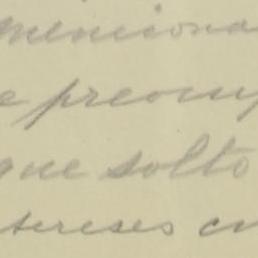 menciona
e preocup
que solto
tereses cu